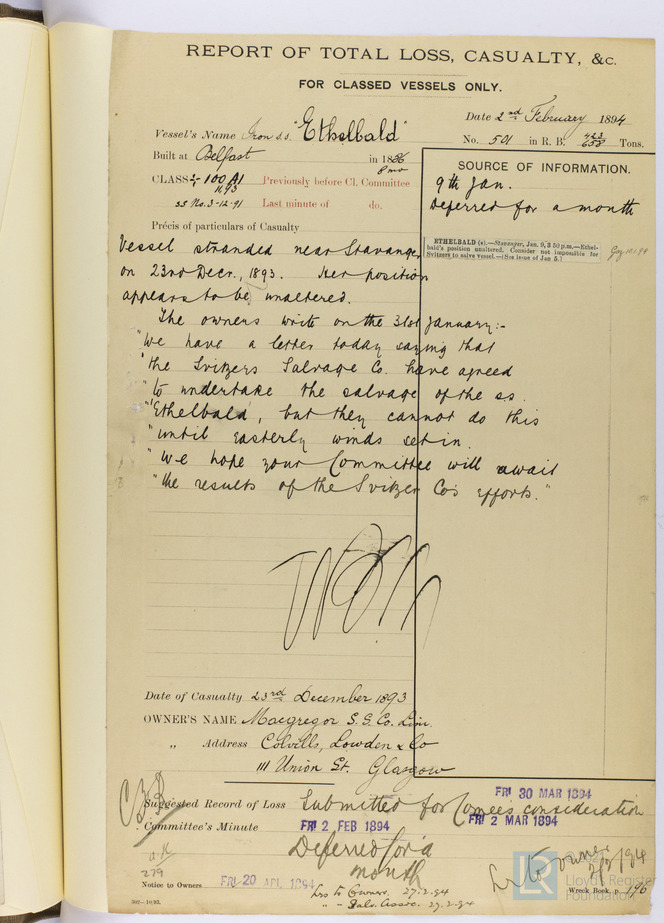 REPORT OF TOTAL LOSS, CASUALTY, &c.
FOR CLASSED VESSELS ONLY.
Date 2nd February 1894
Vessel's Name Iron s.s. "Ethelbald"
No. 501 in R. B. 423 658 Tons.
Built at Belfast in 1886
8 mo
CLASS 100 A1 Previously before Cl. Committee
11,93
ss No. 3-12-91 Last minute of do.
SOURCE OF INFORMATION.
9th Jan.
Deferred for a month
ETHELBALD (s).—Stavanger, Jan. 9, 3 50 p.m.—Ethel-
bald's position unaltered. Consider not impossible for
Svitzers to salve vessel.—(See issue of Jan 5.)
Précis of particulars of Casualty
Vessel stranded near Stavanger
on 23rd Decr., 1893. Her position
appears to be unaltered.
The owners write on the 31st January:-
"We have a letter today saying that
"the Svitzers Salvage Co. have agreed
"to undertake the salvage of the ss.
"Ethelbald, but they cannot do this
"until easterly winds set in.
"We hope your Committee will await
"the results of the Svitzer Co's efforts."
Date of Casualty 23rd December 1893
OWNER'S NAME Macgregor S.S. Co. Lim.
„ Address Colvills, Lowden & Co
111 Union St. Glasgow
FRI 30 MAR 1894
Suggested Record of Loss Submitted for Comee's consideration
Committee's Minute FRI 2 FEB 1894 FRI 2 MAR 1894
Deferred for a
month
279
Notice to Owners FRI 20 APL 1894
Lrs to Owners. 27.2.94
" - Salv. Assoc. 27.2.94
Lr to owners
Wreck Book, p. 196
302—10.93.
LR
Lloyd's Register
Foundation